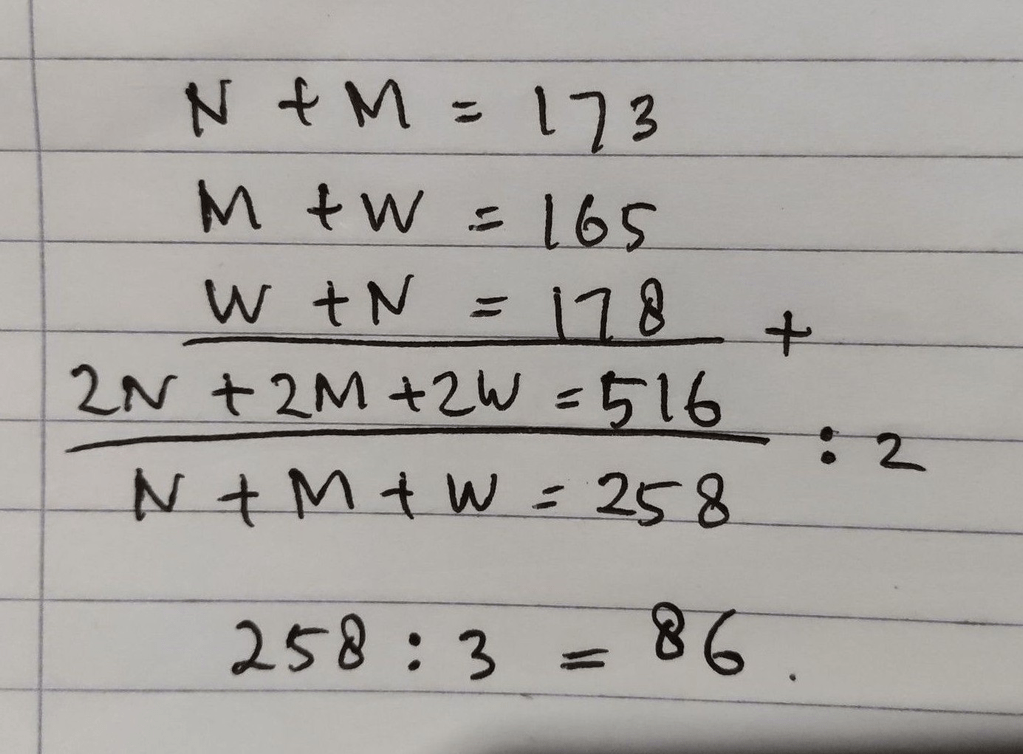 N + M = 173
M + W = 165
W + N = 178 +
2N + 2M + 2W = 516 : 2
N + M + W = 258
258 : 3 = 86.